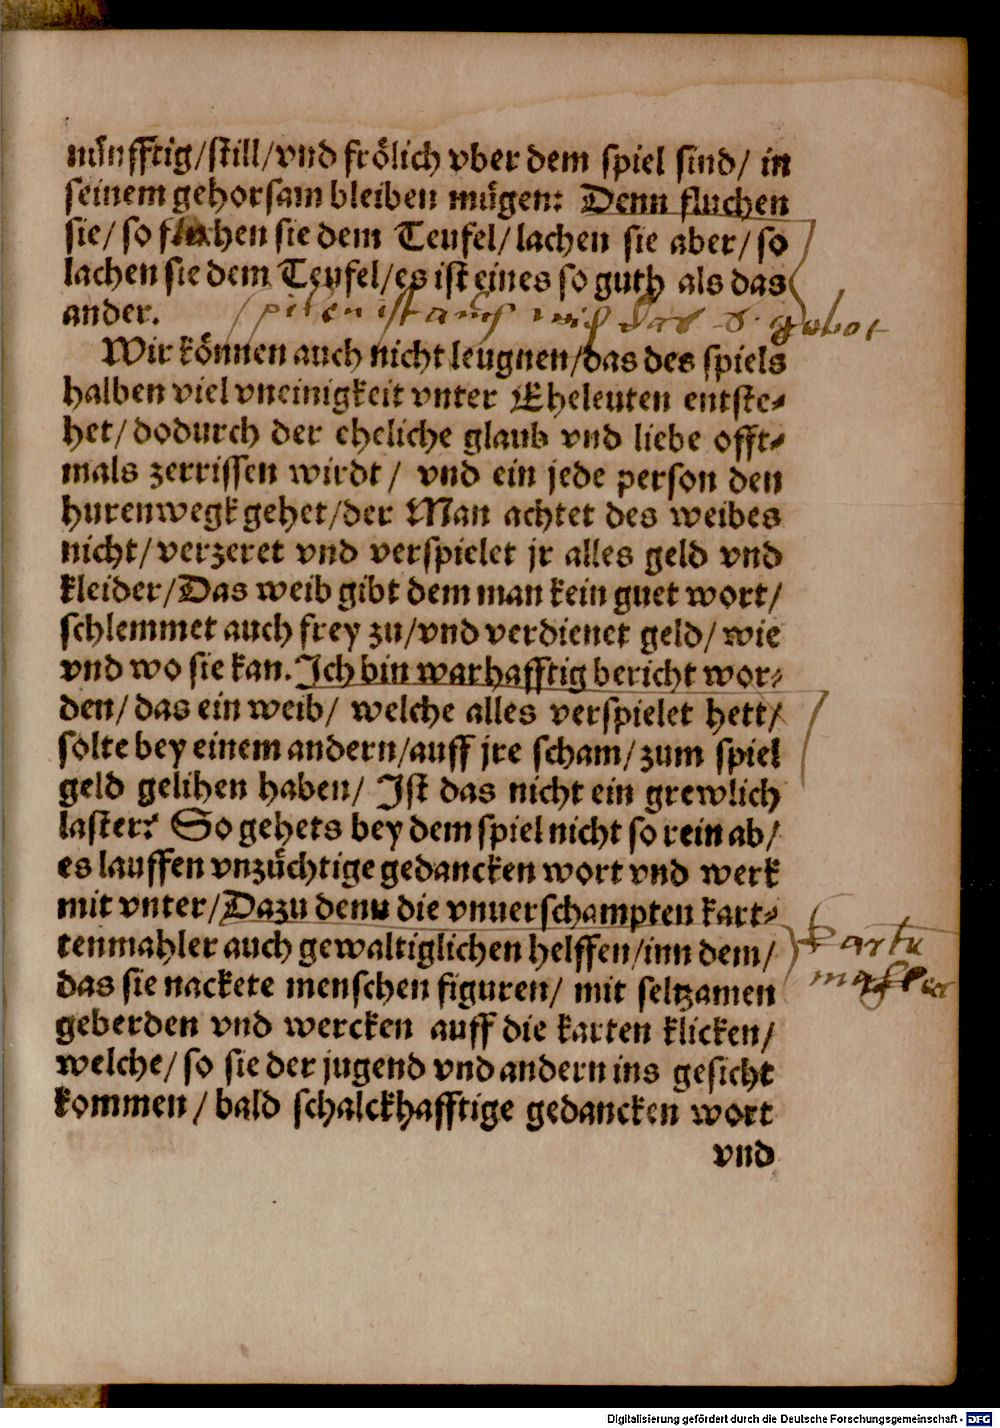 nünfftig/still/vnd frölich vber dem spiel sind/ in
seinem gehorsam bleiben mügen: Denn fluchen
sie/ so fluchen sie dem Teufel/ lachen sie aber/ so
lachen sie dem Teufel/es ist eines so guth als das
ander.
spilen ist auch das 6. gebot
Wir können auch nicht leugnen/das des spiels
halben viel vneinigkeit vnter Eheleuten entste-
het/ dodurch der eheliche glaub vnd liebe offt-
mals zerrissen wirdt/ vnd ein jede person den
hurenwegk gehet/der Man achtet des weibes
nicht/ verzeret vnd verspielet jr alles geld vnd
kleider/Das weib gibt dem man kein guet wort/
schlemmet auch frey zu/vnd verdienet geld/ wie
vnd wo sie kan. Ich bin warhafftig bericht wor-
den/ das ein weib/ welche alles verspielet hett/
solte bey einem andern/auff jre scham/ zum spiel
geld gelihen haben/ Ist das nicht ein grewlich
laster? So gehets bey dem spiel nicht so rein ab/
es lauffen vnzüchtige gedancken wort vnd werk
mit vnter/Dazu denn die vnuerschampten kart-
tenmahler auch gewaltiglichen helffen/inn dem/
das sie nackete menschen figuren/ mit seltzamen
geberden vnd wercken auff die karten klicken/
welche/ so sie der jugend vnd andern ins gesicht
kommen/ bald schalckhafftige gedancken wort
vnd
karten
mahler
Digitalisierung gefördert durch die Deutsche Forschungsgemeinschaft - DFG